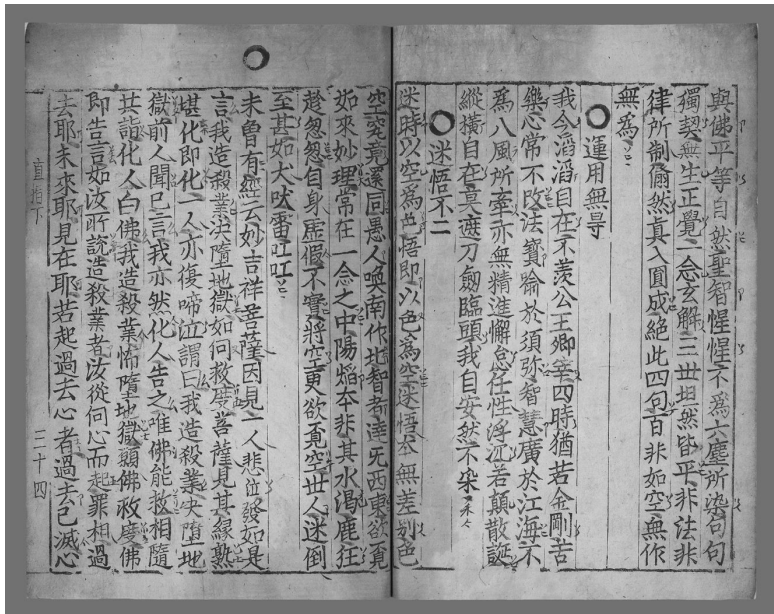 與佛平等自然聖智惺惺不爲六塵所染句句
獨契無生正覺一念玄解三世坦然皆平非法非
律所制翛然真入圓成絕此四句百非如空無作
無爲
運用無㝵
我今滔滔自在不羨公王卿宰四時猶若金剛苦
樂心常不改法寶踰於須弥智慧廣於江海不
爲八風所牽亦無精進懈怠任性浮沉若顛散誕
縱橫自在真遮刀劒臨頭我自安然不采
迷悟不二
迷時以空爲色悟即以色爲空迷悟本無差別色
空究竟還同愚人喚南作北智者達无西東欲覓
如來妙理常在一念之中陽焰本非其水渴鹿狂
趁怱怱自身虛假不實將空更欲覓空世人迷倒
至甚如犬吠雷叿叿
未曾有經云妙吉祥菩薩因見一人悲泣發如是
言我造殺業决墮地獄如何救度菩薩見其緣熟
堪化即化一人亦復啼泣謂曰我造殺業决墮地
獄前人聞已言我亦然化人告之唯佛能救相隨
共詣化人白佛我造殺業怖墮地獄願佛救度佛
即告言如汝所說造殺業者汝從何心而起罪相過
去耶未來耶見在耶若起過去心者過去已滅心
直指下 二十四